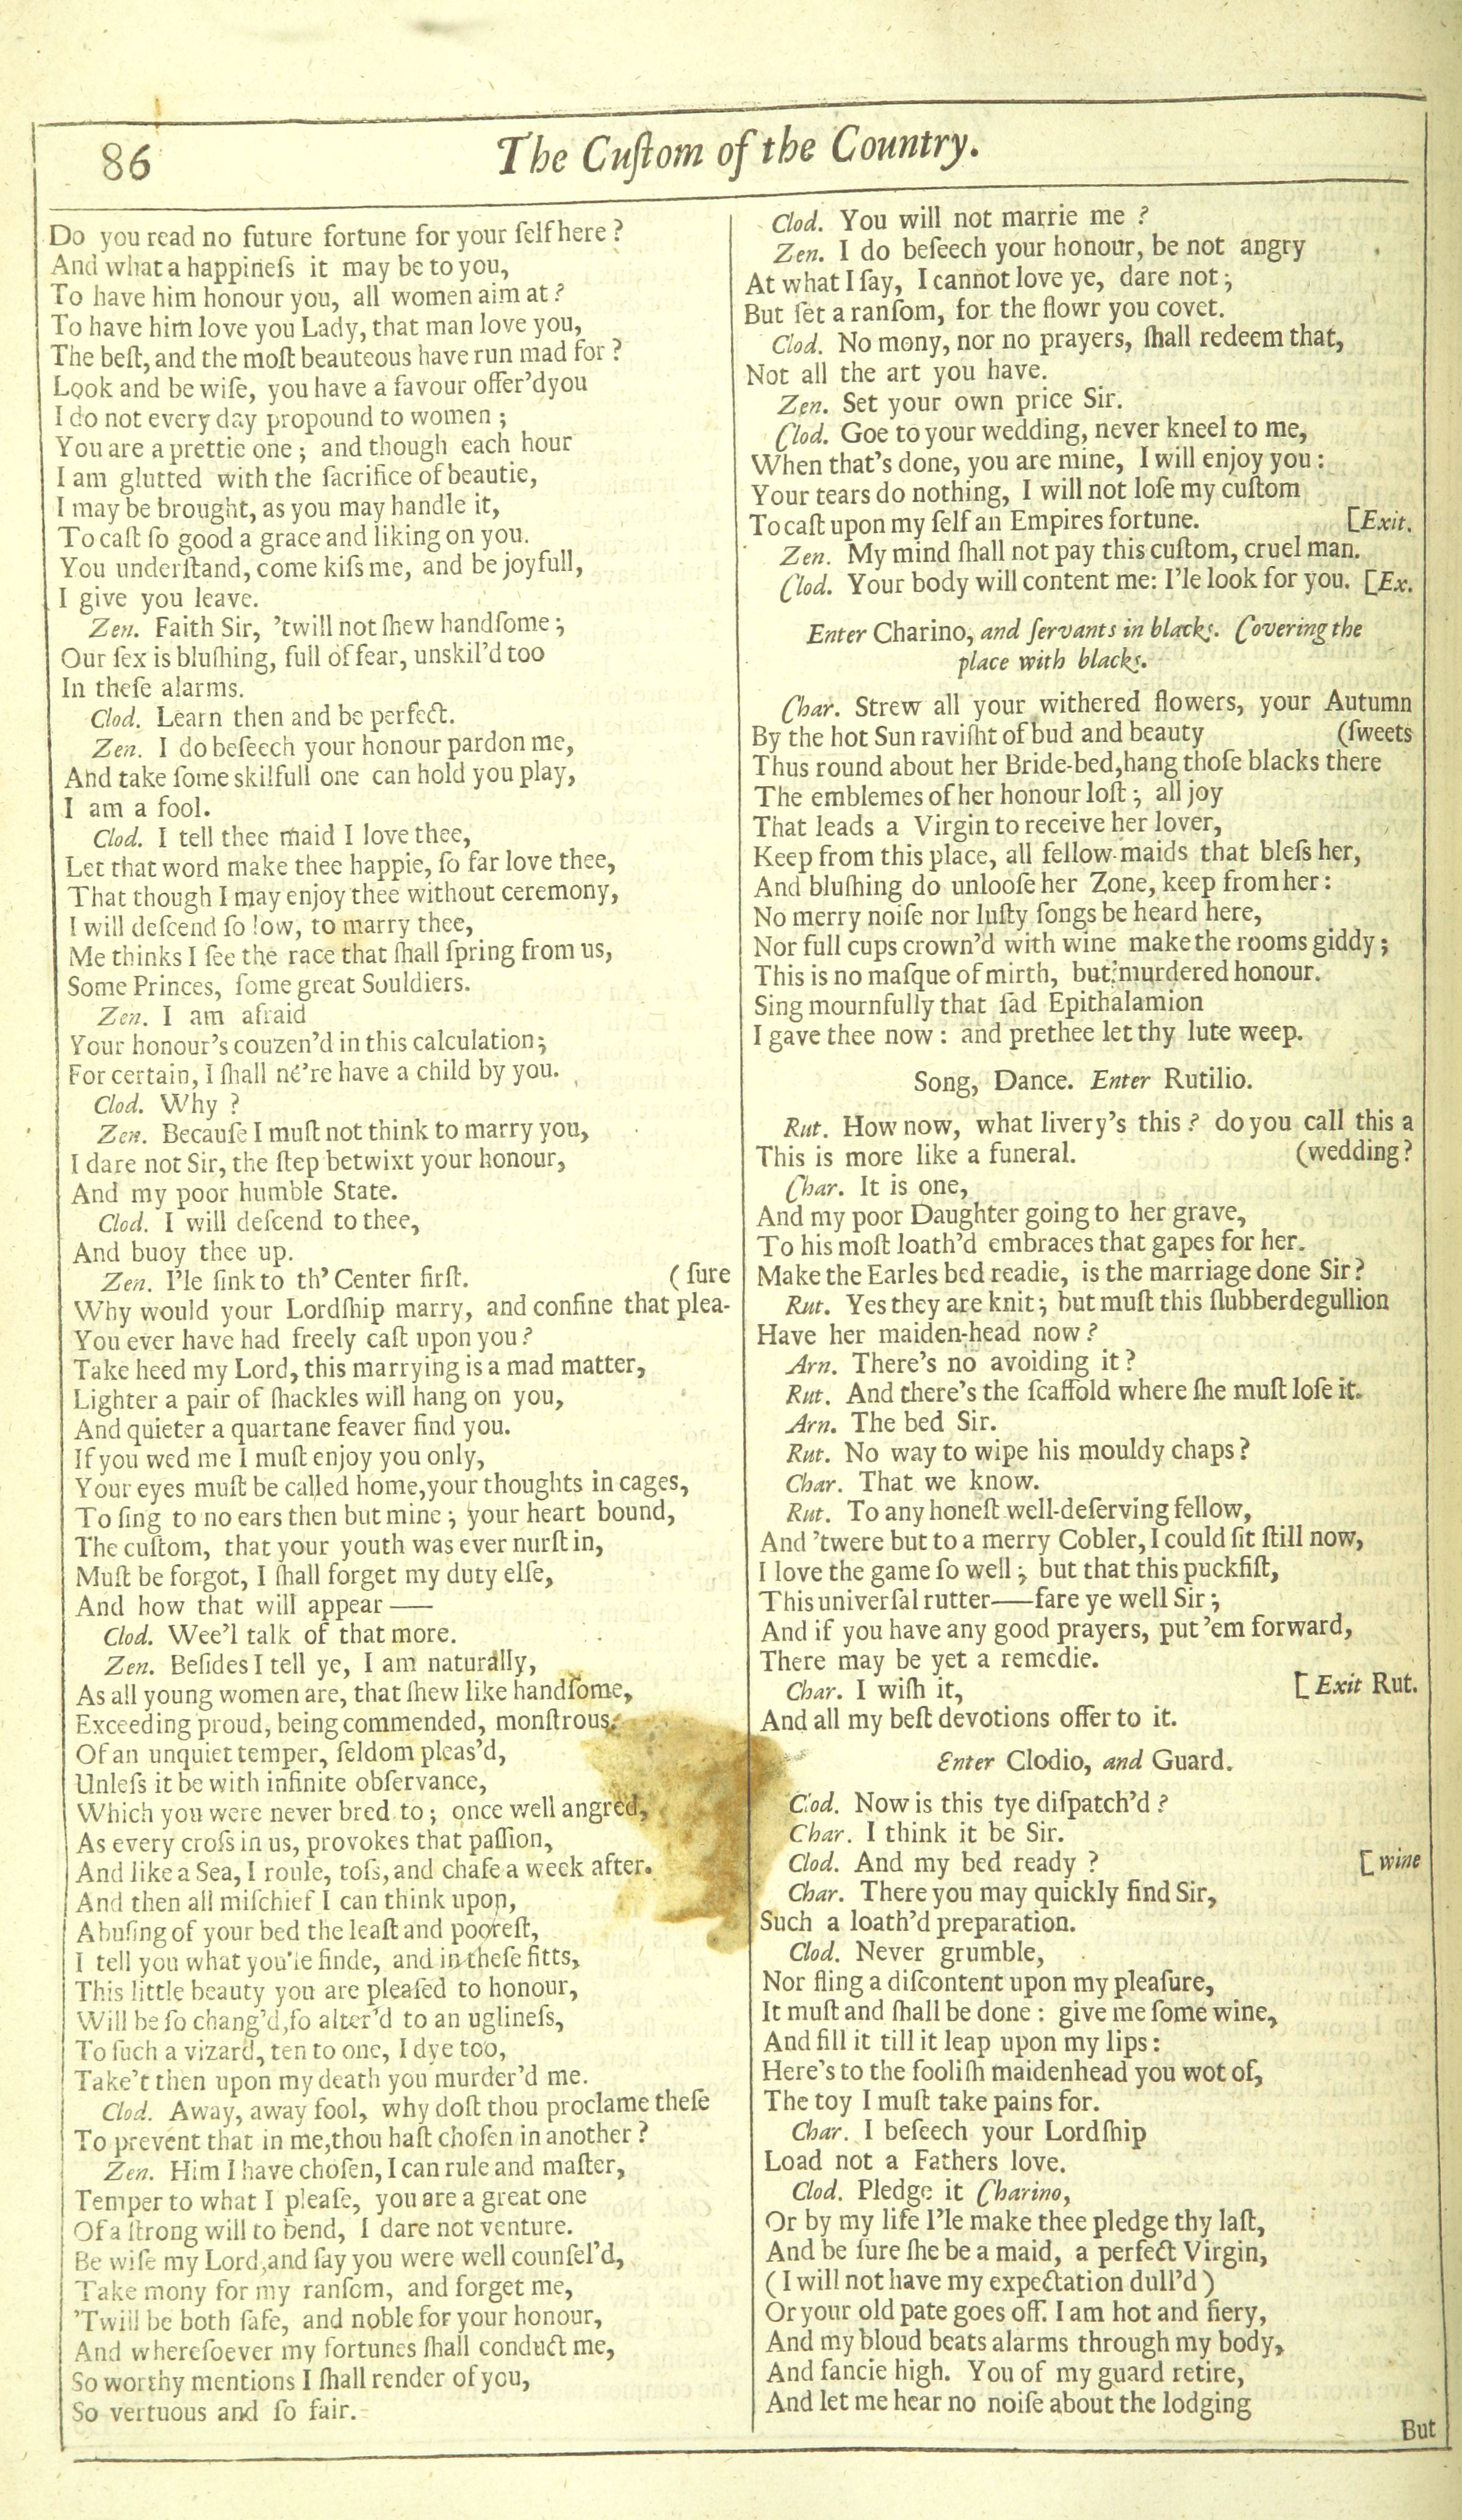 86
The Cuſtom of the Country.
Do you read no future fortune for your ſelf here?
And what a happineſs it may be to you,
To have him honour you, all women aim at?
To have him love you Lady, that man love you,
The beſt, and the moſt beauteous have run mad for?
Look and be wiſe, you have a favour offer'd you
I do not every day propound to women;
You are a prettie one; and though each hour
I am glutted with the ſacrifice of beautie,
I may be brought, as you may handle it,
To caſt ſo good a grace and liking on you.
You underſtand, come kiſs me, and be joyfull,
I give you leave.
Zen. Faith Sir, 'twill not ſhew handſome;
Our ſex is bluſhing, full of fear, unskil'd too
In theſe alarms.
Clod. Learn then and be perfect.
Zen. I do beſeech your honour pardon me,
And take ſome skilfull one can hold you play,
I am a fool.
Clod. I tell thee maid I love thee,
Let that word make thee happie, ſo far love thee,
That though I may enjoy thee without ceremony,
I will deſcend ſo low, to marry thee,
Me thinks I ſee the race that ſhall ſpring from us,
Some Princes, ſome great Souldiers.
Zen. I am afraid
Your honour's couzen'd in this calculation;
For certain, I ſhall ne're have a child by you.
Clod. Why?
Zen. Becauſe I muſt not think to marry you,
I dare not Sir, the ſtep betwixt your honour,
And my poor humble State.
Clod. I will deſcend to thee,
And buoy thee up.
Zen. I'le ſink to th' Center firſt. (ſure
Why would your Lordſhip marry, and confine that plea-
You ever have had freely caſt upon you?
Take heed my Lord, this marrying is a mad matter,
Lighter a pair of ſhackles will hang on you,
And quieter a quartane feaver find you.
If you wed me I muſt enjoy you only,
Your eyes muſt be called home, your thoughts in cages,
To ſing to no ears then but mine; your heart bound,
The cuſtom, that your youth was ever nurſt in,
Muſt be forgot, I ſhall forget my duty elſe,
And how that will appear——
Clod. Wee'l talk of that more.
Zen. Beſides I tell ye, I am naturally,
As all young women are, that ſhew like handſome,
Exceeding proud, being commended, monſtrous.
Of an unquiet temper, ſeldom pleas'd,
Unleſs it be with infinite obſervance,
Which you were never bred to; once well angred,
As every croſs in us, provokes that paſſion,
And like a Sea, I roule, toſs, and chafe a week after.
And then all miſchief I can think upon,
Abuſing of your bed the leaſt and pooreſt,
I tell you what you'le finde, and in theſe fitts,
This little beauty you are pleaſed to honour,
Will be ſo chang'd, ſo alter'd to an uglineſs,
To ſuch a vizard, ten to one, I dye too,
Take't then upon my death you murder'd me.
Clod. Away, away fool, why doſt thou proclame theſe
To prevent that in me, thou haſt choſen in another?
Zen. Him I have choſen, I can rule and maſter,
Temper to what I pleaſe, you are a great one
Of a ſtrong will to bend, I dare not venture.
Be wiſe my Lord, and ſay you were well counſel'd,
Take mony for my ranſom, and forget me,
'Twill be both ſafe, and noble for your honour,
And whereſoever my fortunes ſhall conduct me,
So worthy mentions I ſhall render of you,
So vertuous and ſo fair.
Clod. You will not marrie me?
Zen. I do beſeech your honour, be not angry
At what I ſay, I cannot love ye, dare not;
But ſet a ranſom, for the flowr you covet.
Clod. No mony, nor no prayers, ſhall redeem that,
Not all the art you have.
Zen. Set your own price Sir.
Clod. Goe to your wedding, never kneel to me,
When that's done, you are mine, I will enjoy you:
Your tears do nothing, I will not loſe my cuſtom
To caſt upon my ſelf an Empires fortune. [Exit.
Zen. My mind ſhall not pay this cuſtom, cruel man.
Clod. Your body will content me: I'le look for you. [Ex.
Enter Charino, and ſervants in blacks. Covering the
place with blacks.
Char. Strew all your withered flowers, your Autumn
By the hot Sun raviſht of bud and beauty (ſweets
Thus round about her Bride-bed, hang thoſe blacks there
The emblemes of her honour loſt; all joy
That leads a Virgin to receive her lover,
Keep from this place, all fellow-maids that bleſs her,
And bluſhing do unlooſe her Zone, keep from her:
No merry noiſe nor luſty ſongs be heard here,
Nor full cups crown'd with wine make the rooms giddy;
This is no maſque of mirth, but murdered honour.
Sing mournfully that ſad Epithalamion
I gave thee now: and prethee let thy lute weep.
Song, Dance. Enter Rutilio.
Rut. How now, what livery's this? do you call this a
This is more like a funeral. (wedding?
Char. It is one,
And my poor Daughter going to her grave,
To his moſt loath'd embraces that gapes for her.
Make the Earles bed readie, is the marriage done Sir?
Rut. Yes they are knit; but muſt this ſlubberdegullion
Have her maiden-head now?
Arn. There's no avoiding it?
Rut. And there's the ſcaffold where ſhe muſt loſe it.
Arn. The bed Sir.
Rut. No way to wipe his mouldy chaps?
Char. That we know.
Rut. To any honeſt well-deſerving fellow,
And 'twere but to a merry Cobler, I could ſit ſtill now,
I love the game ſo well; but that this puckfiſt,
This univerſal rutter——fare ye well Sir;
And if you have any good prayers, put 'em forward,
There may be yet a remedie.
Char. I wiſh it, [Exit Rut.
And all my beſt devotions offer to it.
Enter Clodio, and Guard.
Clod. Now is this tye diſpatch'd?
Char. I think it be Sir.
Clod. And my bed ready? [wine
Char. There you may quickly find Sir,
Such a loath'd preparation.
Clod. Never grumble,
Nor fling a diſcontent upon my pleaſure,
It muſt and ſhall be done: give me ſome wine,
And fill it till it leap upon my lips:
Here's to the fooliſh maidenhead you wot of,
The toy I muſt take pains for.
Char. I beſeech your Lordſhip
Load not a Fathers love.
Clod. Pledge it Charino,
Or by my life I'le make thee pledge thy laſt,
And be ſure ſhe be a maid, a perfect Virgin,
(I will not have my expectation dull'd)
Or your old pate goes off. I am hot and fiery,
And my bloud beats alarms through my body,
And fancie high. You of my guard retire,
And let me hear no noiſe about the lodging
But